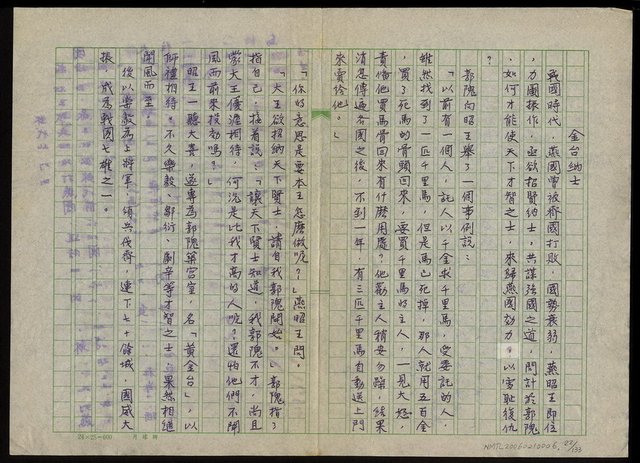 金台納士
戰國時代，燕國曾被齊國打敗，國勢衰弱，燕昭王即位
，力圖振作，亟欲招賢納士，共謀強國之道，問計於郭隗
，如何才能使天下才智之士，來歸燕國効力，以雪恥復仇
？
郭隗向昭王舉了一個事例說：
「以前有一個人，託人以千金求千里馬，受委託的人，
雖然找到了一匹千里馬，但是馬已死掉，那人就用五百金
，買了死馬的骨頭回來，要買千里馬的主人，一見大怒，
責備他買馬骨回來有什麼用處？他勸主人稍安勿躁，結果
消息傳遍各國之後，不到一年，有三匹千里馬自動送上門
來賣給他。」
「你的意思是要本王怎麼做呢？」燕昭王問。
「大王欲招納天下賢士，請自我郭隗開始。」郭隗指了
指自己，接着說：「讓天下賢士知道，我郭隗不才，尚且
蒙大王優渥相待，何況是比我才高的人呢？還怕他們不聞
風而前來投効嗎？」
昭王一聽大喜，遂專為郭隗築宮室，名「黃金台」，以
師禮相待。不久樂毅、鄒衍、劇辛等才智之士，果然相繼
聞風而至。
後以樂毅為上將軍，領兵伐齊，連下七十餘城，國威大
振，成為戰國七雄之一。
24×25=600
NMTL20060210006
22/133